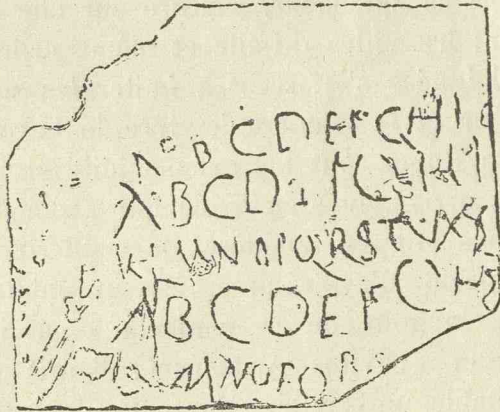 A B C D E F G H I
A B C D E F G H I
K M N O P Q R S T V X Y
A B C D E F G H
M N O P Q R S